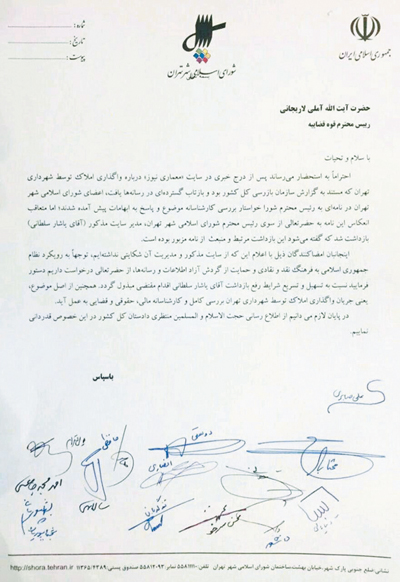 جمهوری اسلامی ایران
شورای اسلامی شهر تهران
شماره :
تاریخ :
پیوست :
حضرت آیت الله آملی لاریجانی
رییس محترم قوه قضاییه
با سلام و تحیات
احتراماً به استحضار می‌رساند پس از درج خبری در سایت «معماری نیوز» درباره واگذاری املاک توسط شهرداری
تهران که مستند به گزارش سازمان بازرسی کل کشور بود و بازتاب گسترده‌ای در رسانه‌ها یافت، اعضای شورای اسلامی شهر
تهران در نامه‌ای به رئیس محترم شورا خواستار بررسی کارشناسانه موضوع و پاسخ به ابهامات پیش آمده شدند؛ اما متعاقب
انعکاس این نامه به حضرتعالی از سوی رئیس محترم شورای اسلامی شهر تهران، مدیر سایت مذکور (آقای یاشار سلطانی)
بازداشت شد که گفته می‌شود این بازداشت مرتبط و منبعث از نامه مزبور بوده است.
اینجانبان امضاکنندگان ذیل با اعلام این که از سایت مذکور و مدیریت آن شکایتی نداشته‌ایم، توجهاً به رویکرد نظام
جمهوری اسلامی به فرهنگ نقد و نقادی و حمایت از گردش آزاد اطلاعات و رسانه‌ها، از حضرتعالی درخواست داریم دستور
فرمایید نسبت به تسهیل و تسریع شرایط رفع بازداشت آقای یاشار سلطانی اقدام مقتضی مبذول گردد. همچنین از اصل موضوع،
یعنی جریان واگذاری املاک توسط شهرداری تهران بررسی کامل و کارشناسانه مالی، حقوقی و قضایی به عمل آید.
در پایان لازم می دانیم از اطلاع رسانی حجت الاسلام و المسلمین منتظری دادستان کل کشور در این خصوص قدردانی
نماییم.
باسپاس
نشانی:ضلع جنوبی پارک شهر-خیابان بهشت-ساختمان شورای اسلامی شهر تهران
http://shora.tehran.ir